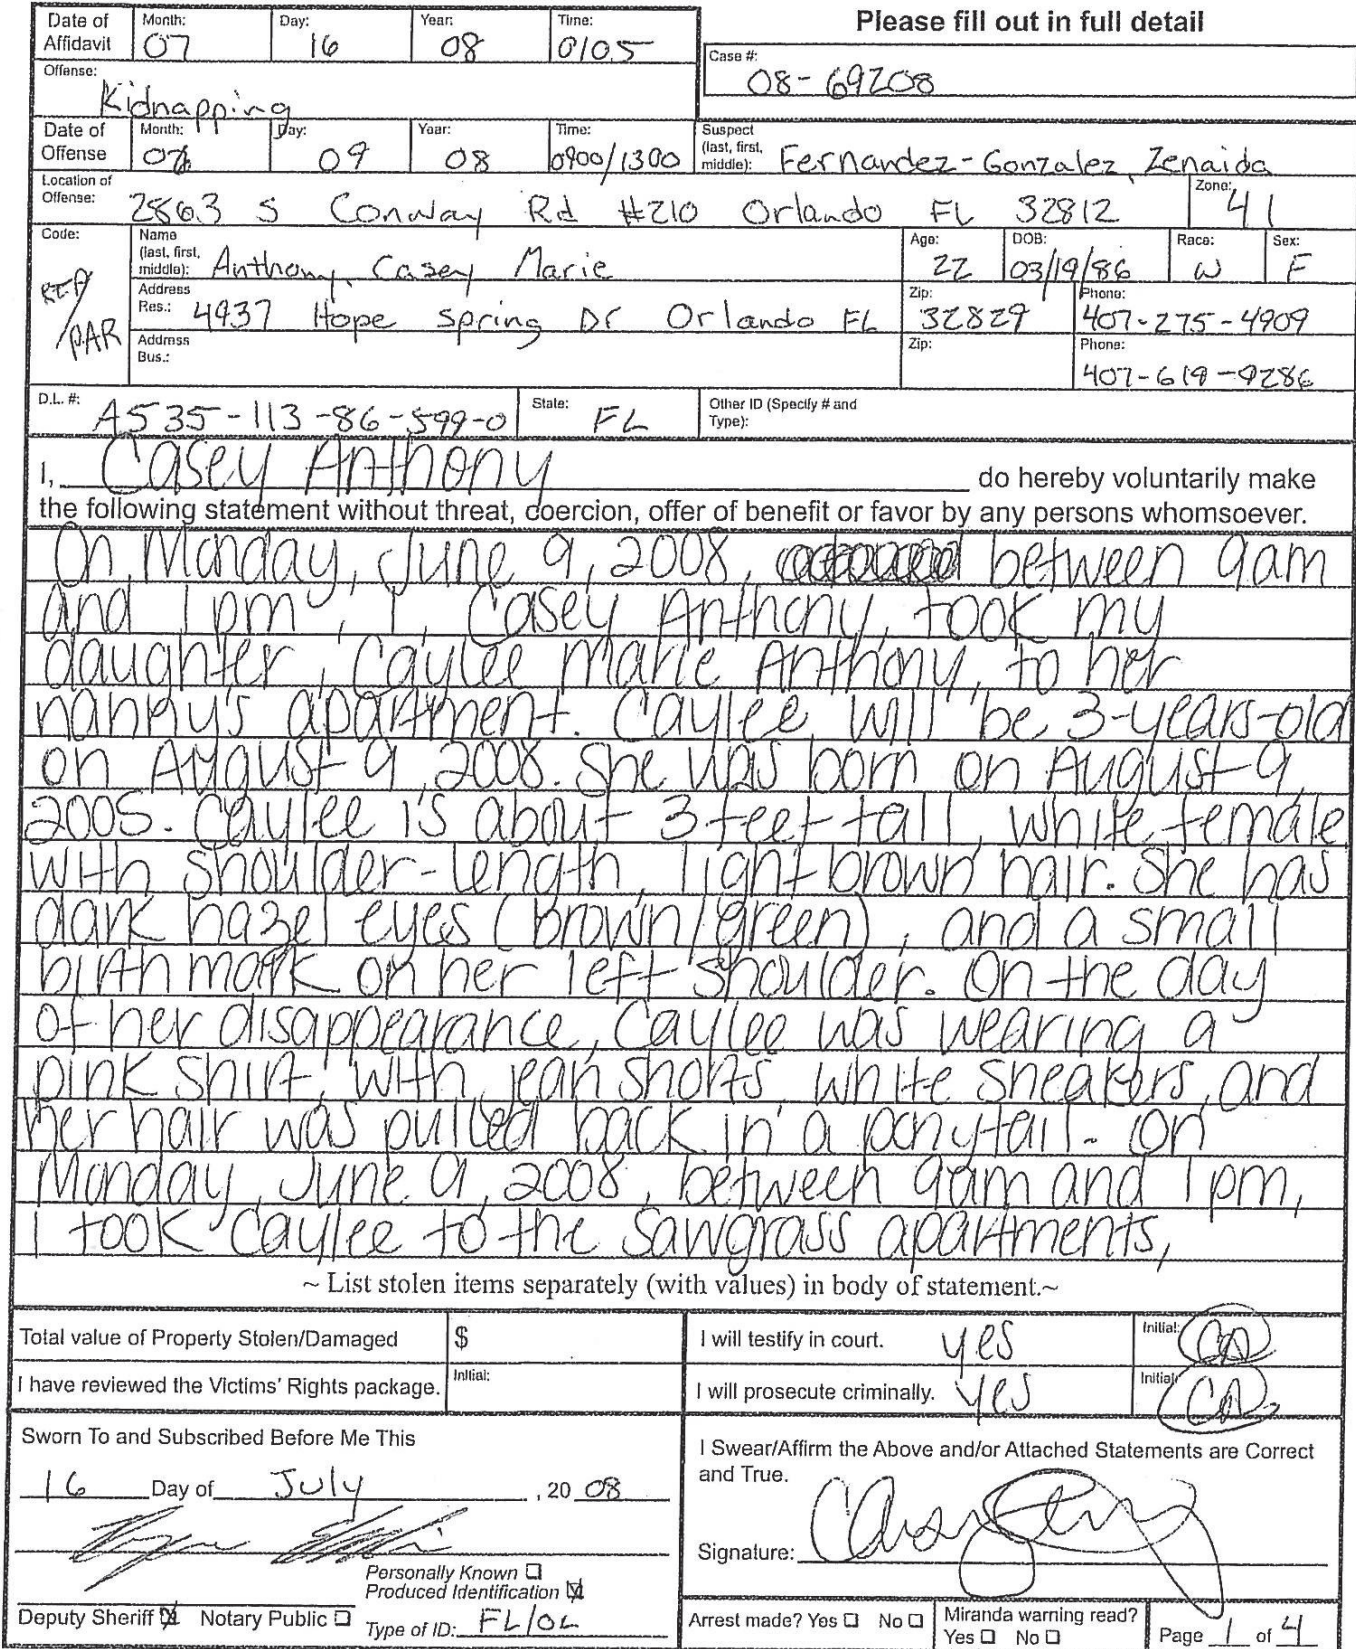 Please fill out in full detail
Date of Affidavit Month: 07 Day: 16 Year: 08 Time: 0105
Case #: 08-69208
Offense: Kidnapping
Date of Offense Month: Day: 09 Year: 08 Time: 0900/1300
Suspect (last, first, middle): Fernandez-Gonzalez, Zenaida
Location of Offense: 2863 S Conway Rd #210 Orlando FL 32812 Zone: 41
Code: REP/PAR
Name (last, first, middle): Anthony, Casey Marie Age: 22 DOB: 03/19/86 Race: W Sex: F
Address Res.: 4937 Hope Spring Dr Orlando FL Zip: 32829 Phone: 407-275-4909
Address Bus.: Zip: Phone: 407-619-9286
D.L. #: A535-113-86-599-0 State: FL Other ID (Specify # and Type):
I, Casey Anthony do hereby voluntarily make
the following statement without threat, coercion, offer of benefit or favor by any persons whomsoever.
On Monday, June 9, 2008, between 9am
and 1pm, I, Casey Anthony, took my
daughter, Caylee Marie Anthony, to her
nanny's apartment. Caylee will be 3-years-old
on August 9, 2008. She was born on August 9,
2005. Caylee is about 3 feet tall, white female
with shoulder-length, light brown hair. She has
dark hazel eyes (brown/green), and a small
birthmark on her left shoulder. On the day
of her disappearance, Caylee was wearing a
pink shirt, with jean shorts, white sneakers, and
her hair was pulled back in a ponytail. On
Monday, June 9, 2008, between 9am and 1pm,
I took Caylee to the Sawgrass apartments,
~ List stolen items separately (with values) in body of statement.~
Total value of Property Stolen/Damaged $
I will testify in court. yes Initial: CA
I have reviewed the Victims' Rights package. Initial:
I will prosecute criminally. yes Initial: CA
Sworn To and Subscribed Before Me This
16 Day of July, 20 08
I Swear/Affirm the Above and/or Attached Statements are Correct
and True.
Signature:
Personally Known
Produced Identification
Deputy Sheriff Notary Public Type of ID: FL/OL
Arrest made? Yes No
Miranda warning read?
Yes No
Page 1 of 4